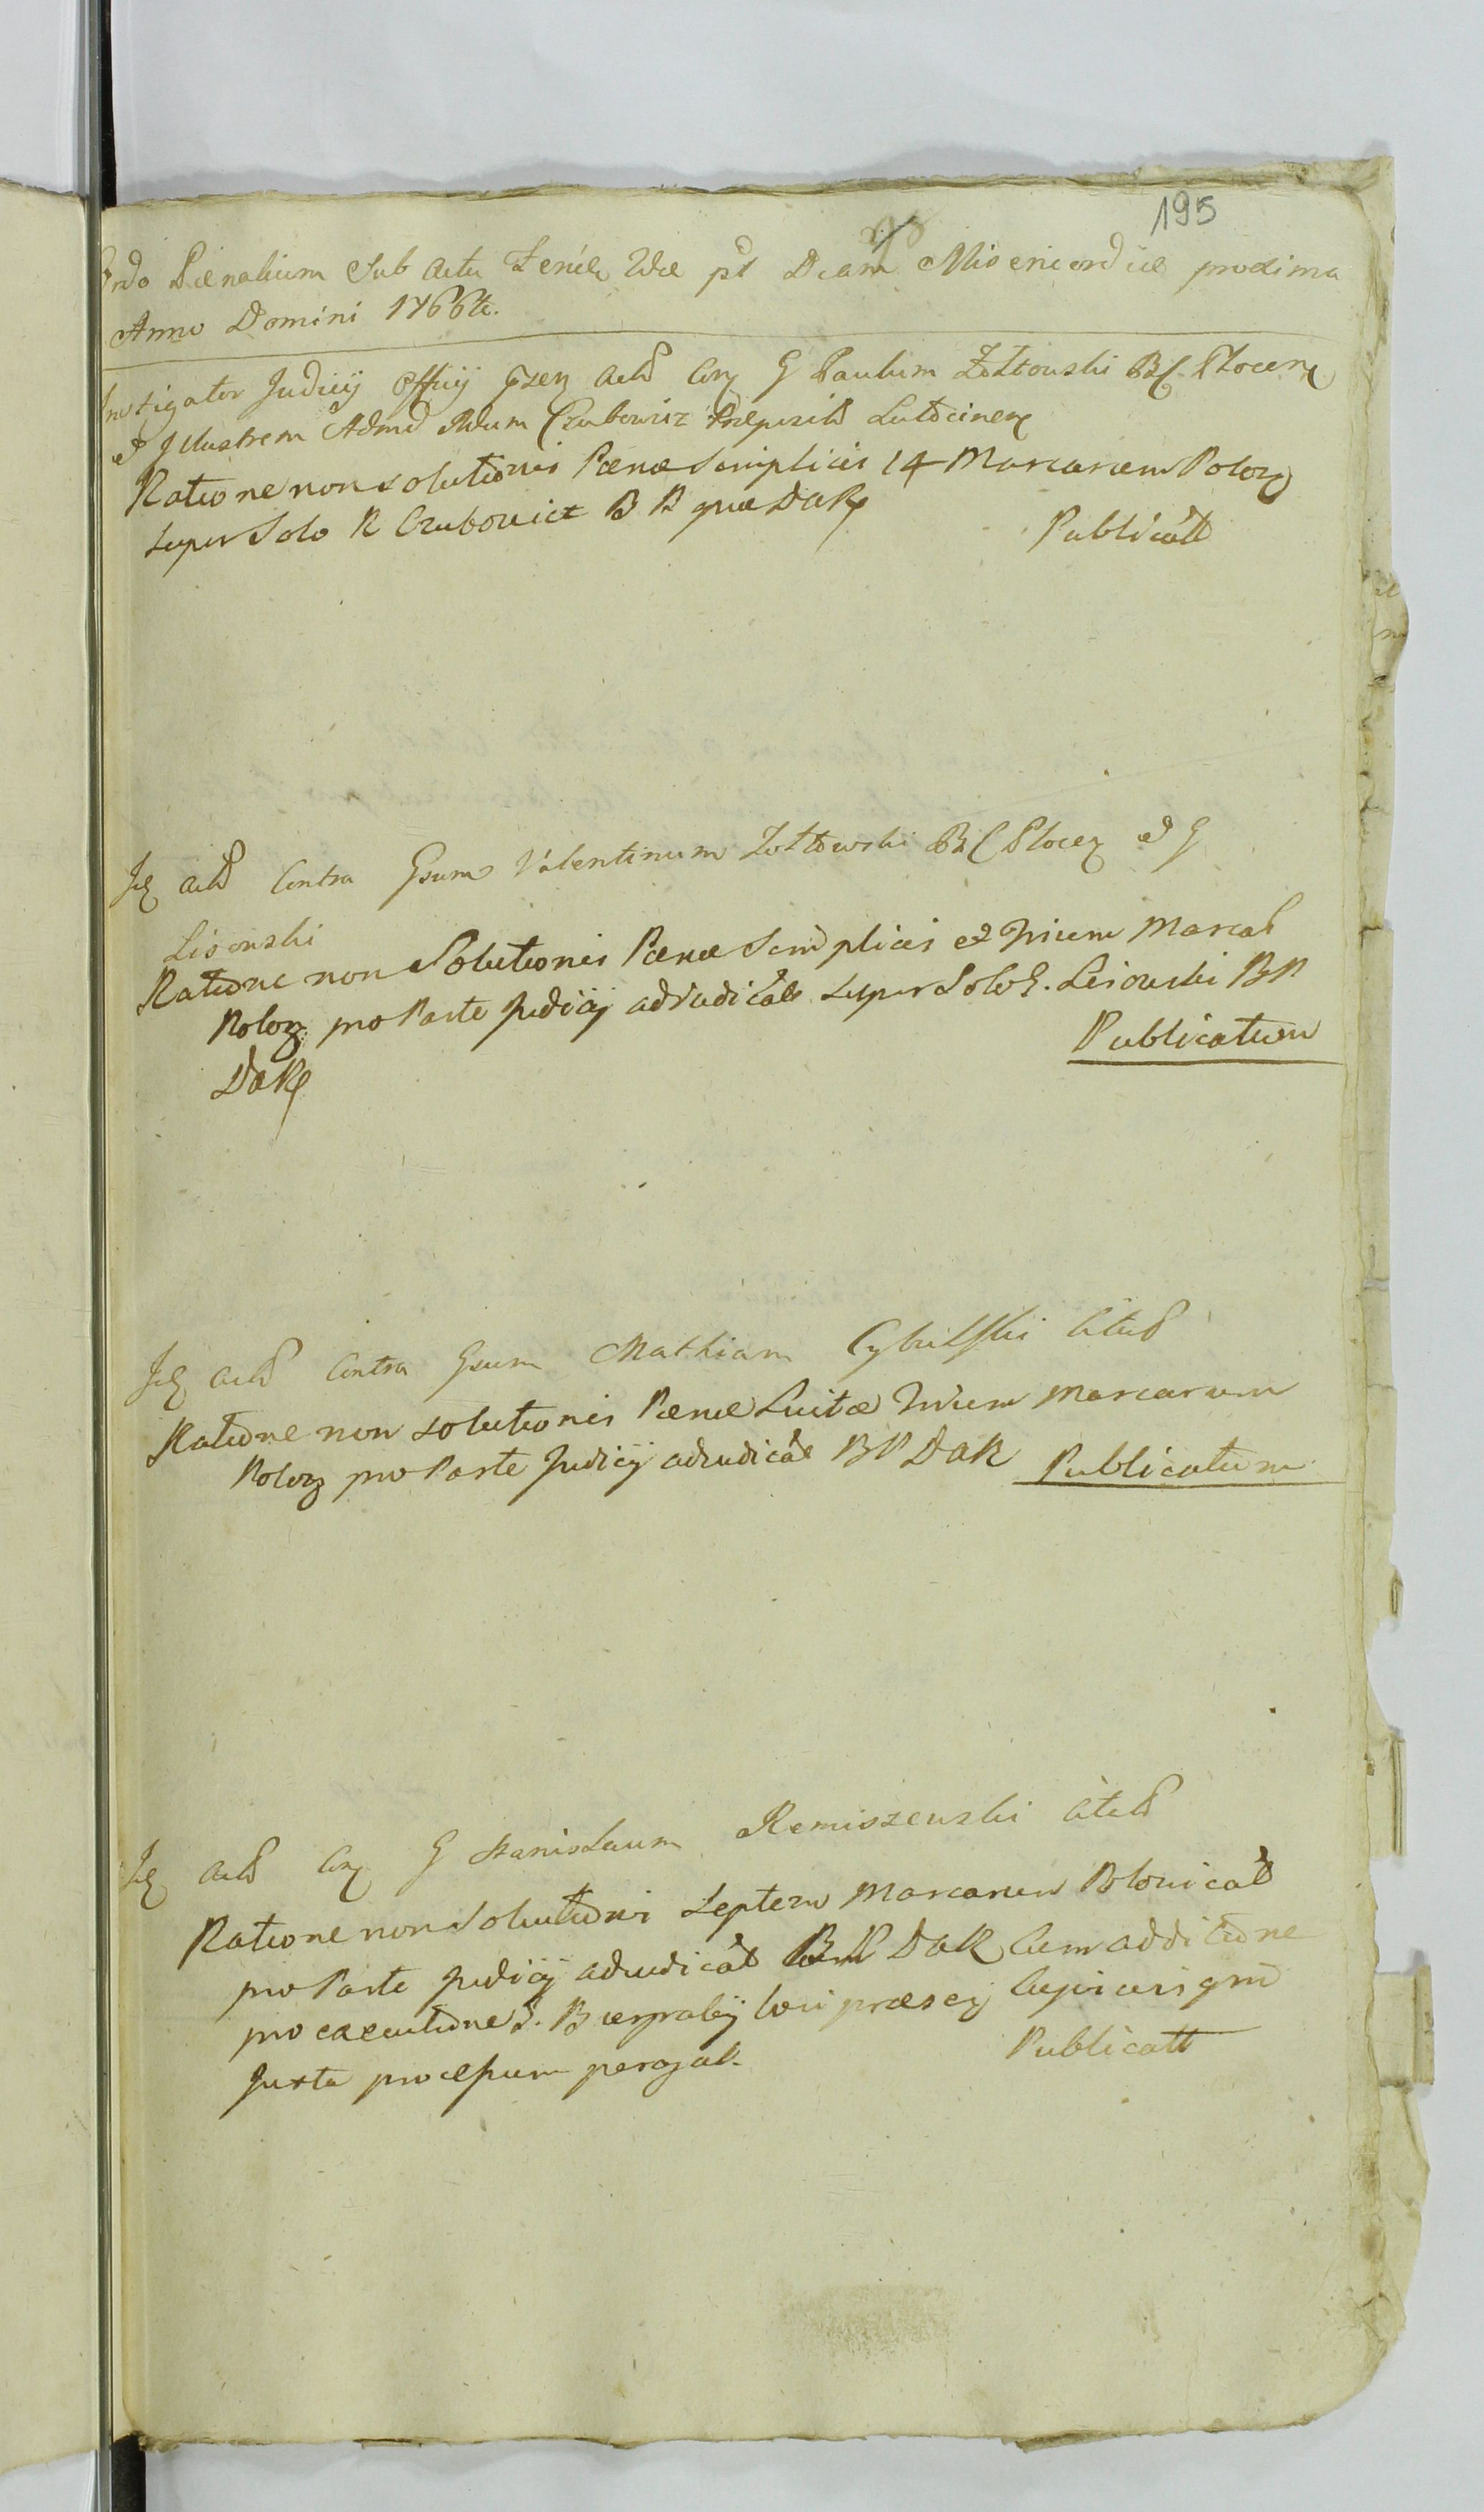 195
Ordo Pænalium Sub actu Feriæ 2dæ pt Dcam Misericordiæ proxima
Anno Domini 1766te.
Instigator Judicij Officij Actd Con G Paulum Zołtowski BC Plocen
et Jllustrem Admd Rdum Czubowicz Præposit Lutocinen
Ratione non solutionis Pænæ Simplicis 14 Marcarum Polon
super Solo R Czubowicz B R que DaR
Publicatt
Actd Contra Gsum Valentinum Zołtowski BC Plocen et G
Lisowski
Ratione non Solutionis Pænæ Simplicis et trium Marcar
Polon pro Parte Judicij adiudicat super Solo G. Lisowski BP
DaR
Publicatum
Actd Contra Gsum Mathiam Cybulski Citat
Ratione non solutionis Pænæ Luitæ trium Marcarum
Polon pro Parte Judicij adiudicat BP DaR Publicatum
Actd Con G Stanislaum Remiszewski Citat
Ratione non Solutionis Septem Marcarum Polonicat
pro Parte Judicij adiudicat BP DaR Cum additione
pro executione S. loci præsen Cujus
Juxta processum peragat.
Publicatt